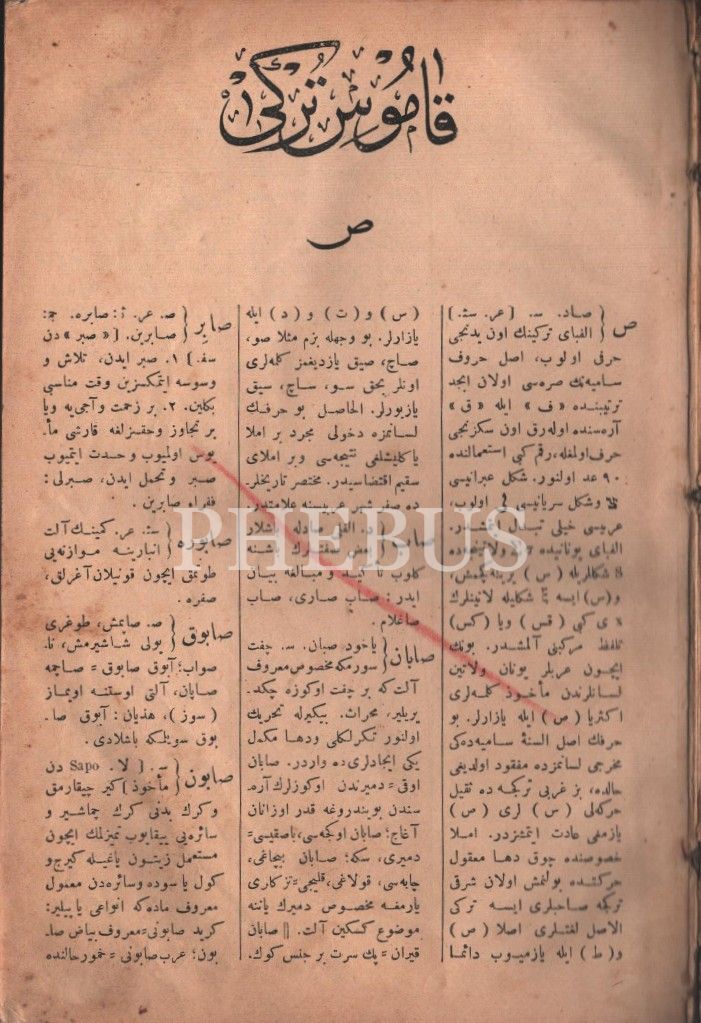 قاموس تركی
ص
ص { صاد. س. [عر. سث.]
الفبای تركینك اون یدنجی
حرفی اولوب، اصل حروف
سامیه‌نك صره‌سی اولان ابجد
ترتیبنده «ف» ایله «ق»
آره‌سنده اوله‌رق اون سكزنجی
حرف اولمغله، رقم كبی استعمالنده
۹۰ عد اولنور. شكل عبرانیسی
وشكل سریانیسی اولوب،
عربیسی خیلی تبدل ایتمشدر.
الفبای یونانیده
شكللریله (س) یرینه كچمش،
و(س) ایسه شكلیله لاتینلرك
ی كبی (قس) ویا (كس)
تلفظ مركبنی آلمشدر. بونك
ایچون عربلر یونان ولاتین
لسانلرندن مأخوذ كلمه‌لری
اكثریا (ص) ایله یازارلر. بو
حرفك اصل السنهٔ سامیه‌ده‌كی
مخرجی لسانمزده مفقود اولدیغی
حالده، بز غربی تركجه ده ثقیل
حركه‌لی (س) لری (ص)
یازمغی عادت ایتمشزدر. املا
خصوصنده چوق دها معقول
حركتده بولنمش اولان شرقی
تركجه صاحبلری ایسه تركی
الاصل لغتلری اصلا (ص)
و(ط) ایله یازمیوب دائما
(س) و (ت) و (د) ایله
یازارلر. بو وجهله بزم مثلا صو،
صاچ، صیق یازدیغمز كلمه‌لری
اونلر بحق سو، ساچ، سیق
یازیورلر. الحاصل بو حرفك
لسانمزه دخولی مجرد بر املا
یاكلیشلغی نتیجه‌سی وبر املای
سقیم اقتضاسیدر. مختصر تاریخلر-
ده صفر شهر عربیسنه علامتدر.
صاب { د. الفی صادله باشلار
بعض صفتلرك باشنه
كلوب تأكید و مبالغه بیان
ایدر: صاپ صاری، صاپ
صاغلام.
صاپان { یاخود صبان. س. چفت
سورمكه مخصوص معروف
آلت كه بر چفت اوكوزه چكد-
یریلیر، محراث. بیكیرله تحریك
اولنور تكرلكلی ودها مكمل
یكی ایجادلری ده واردر. صاپان
اوقی = دمیرندن اوكوزلرك آره-
سندن بویندروغه قدر اوزانان
آغاج؛ صاپان اوكچه‌سی، باصقیسی =
دمیری، سكه؛ صاپان بیچاغی،
چاپه‌سی، قولاغی، قلیجی = تزكاری
یارمغه مخصوص دمیرك یاننه
موضوع كسكین آلت. || صاپان
قیران = پك سرت بر جنس كوك.
صابر { ص. عر. ث: صابره. ج:
صابرین. [«صبر» دن
سف.] ۱. صبر ایدن، تلاش و
وسوسه ایتمكسزین وقت مناسبی
بكلین. ۲. بر زحمت وآجی‌یه ویا
بر تجاوز وحقسزلغه قارشی مأ-
یوس اولمیوب وحدت ایتمیوب
صبر و تحمل ایدن، صبرلی:
فقراء صابرین.
صابوره { سث. عر. كمینك آلت
انبارینه موازنه‌یی
طوتمق ایچون قونیلان آغرلق،
صفره.
صابوق { ص. صاپمش، طوغری
یولی شاشیرمش، نا-
صواب؛ آبوق صابوق = صاچمه
صاپان، آلتی اوستنه اویماز
(سوز)، هذیان: آبوق صا-
بوق سویلمكه باشلادی.
صابون { س. [لا. Sapo دن
مأخوذ] كیر چیقارمق
وكرك بدنی كرك چماشیر و
سائره‌یی ییقایوب تمیزلمك ایچون
مستعمل زیتون یاغیله كیرج و
كول یا سوده وسائره‌دن معمول
معروف ماده كه انواعی یاپیلیر:
كرید صابونی = معروف بیاض صا-
بون؛ عرب صابونی = خمور حالنده
PHEBUS